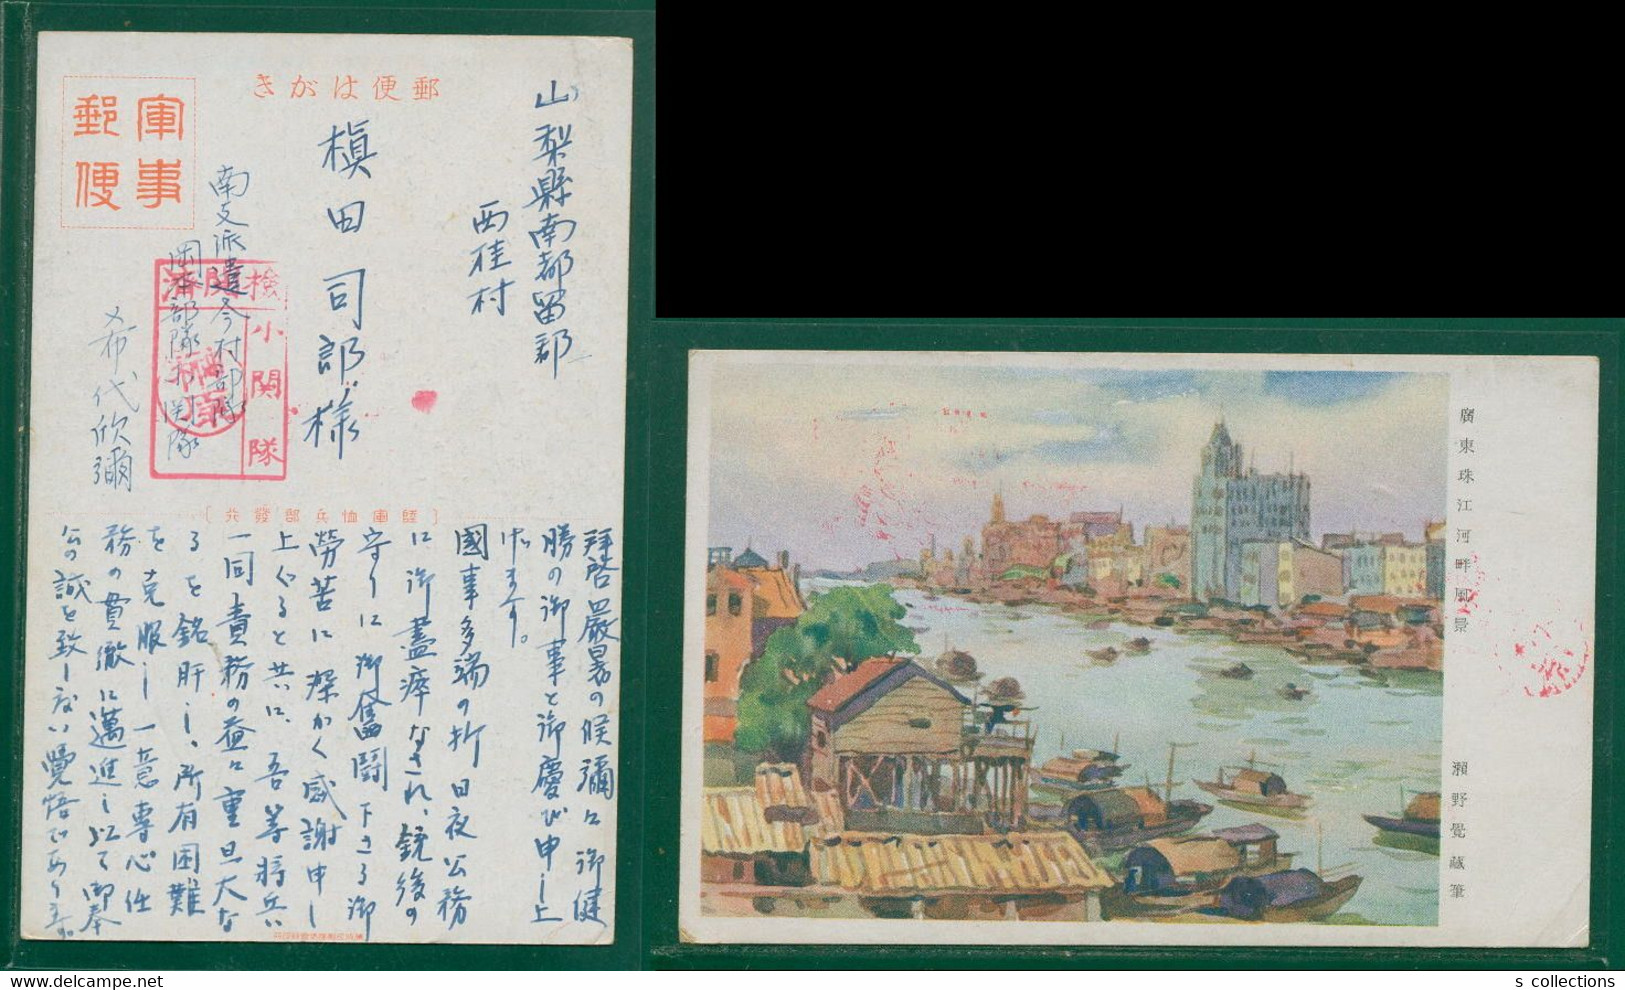 郵便はがき
軍事
郵便
山梨縣南都留郡
西桂村
槙田司郎様
南支派遣今村部隊
岡本部隊小関隊
希代欣彌
検閲済
小関隊
〔陸軍恤兵部發行〕
拜啓嚴暑の候彌々御健
勝の御事と御慶び申し上
げます。
國事多端の折日夜公務
に御盡瘁なされ、銃後の
守りに御奮闘下さる御
勞苦に深かく感謝申し
上ぐると共に、吾等將兵
一同責務の益々重且大な
るを銘肝し、所有困難
を克服し一意專心任
務の貫徹に邁進し以て御奉
公の誠を致したい覺悟であります。
廣東珠江河畔風景
瀬野覺藏筆
s collections